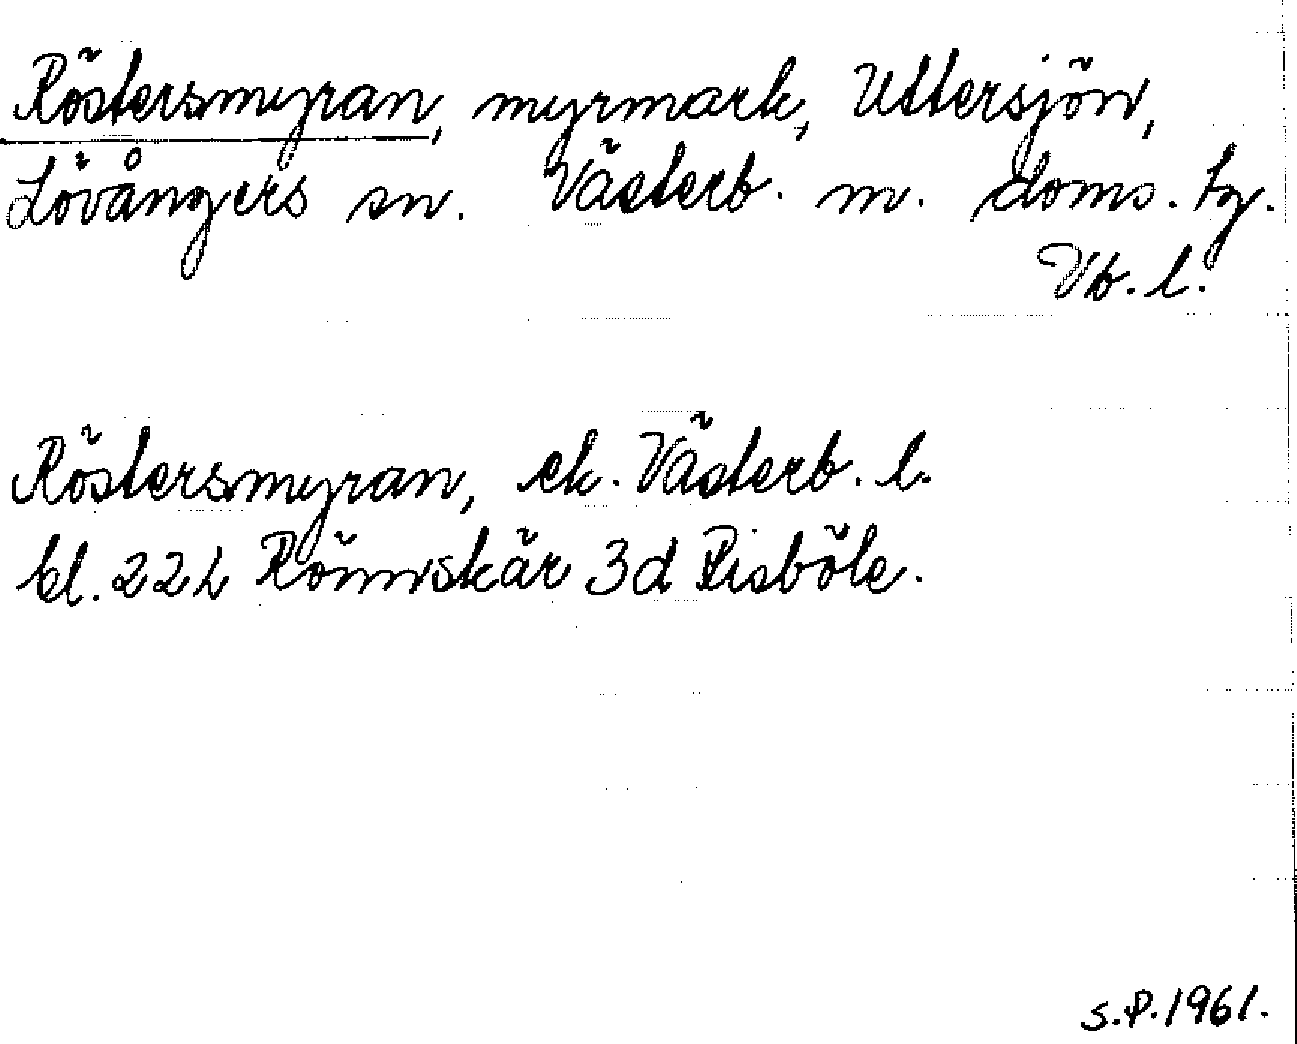 Röstersmyran, myrmark, Uttersjön,
Lövångers sn. Västerb. m. doms. tg.
Vb. l.
Röstersmyran, ek. Västerb. l.
bl. 22L Rönnskär 3d Risböle.
S.P. 1961.